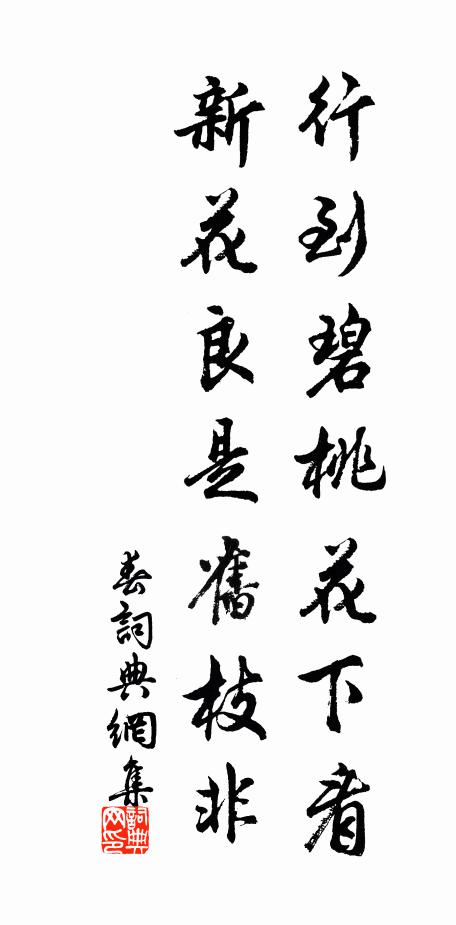 行到碧桃花下看
新花良是舊枝非
春詞典網集
詞典網印